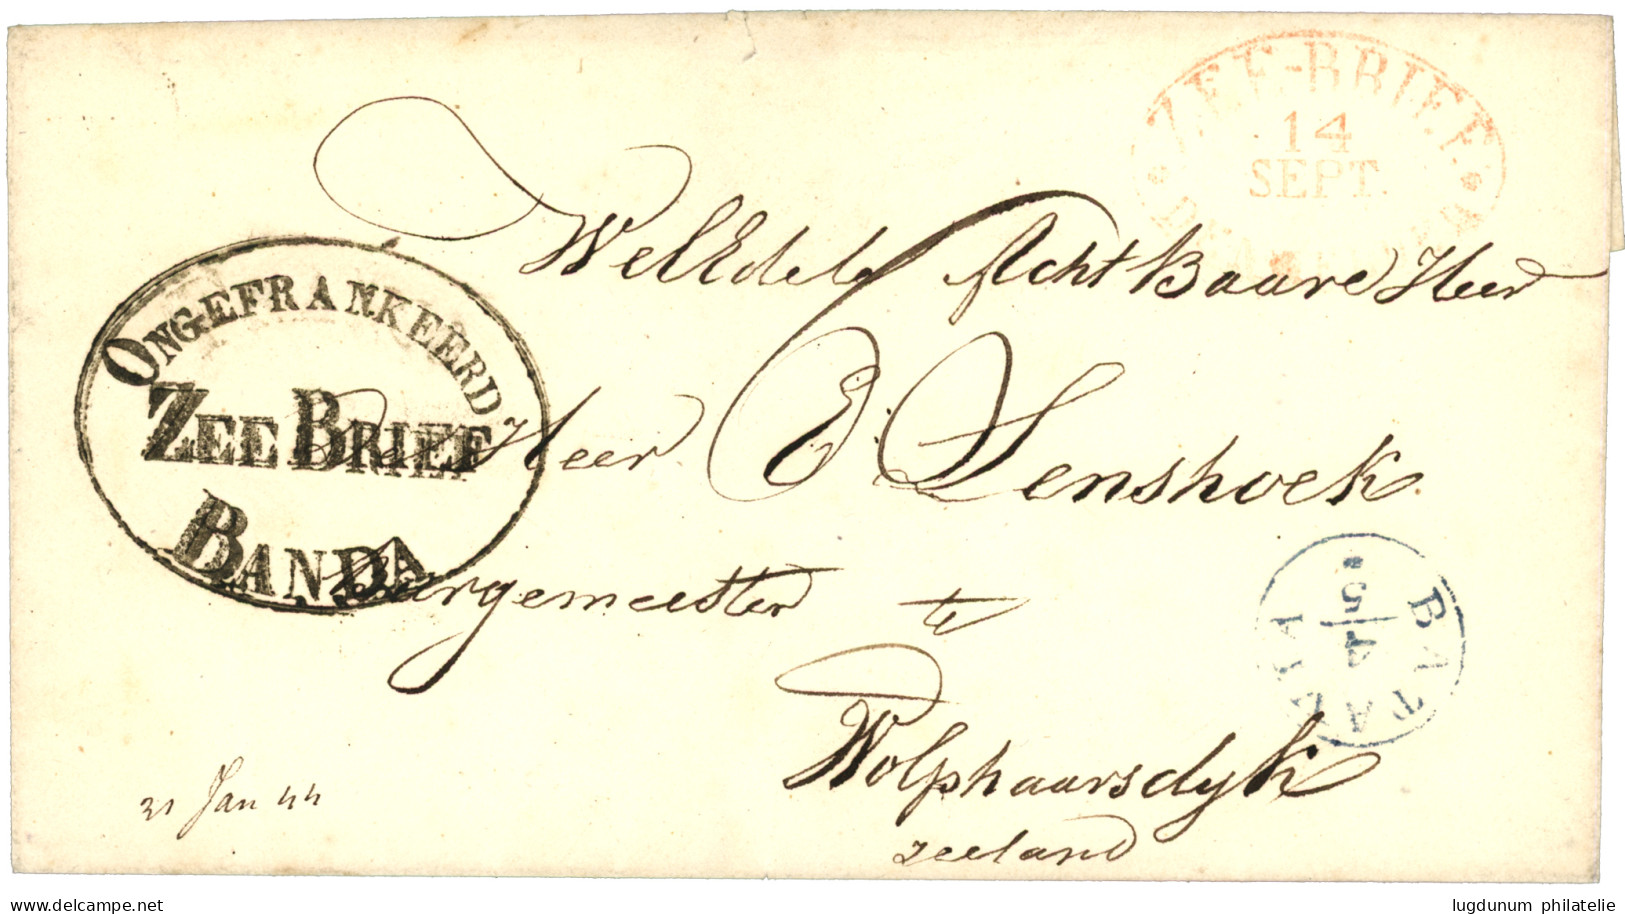 ZEE-BRIEF
14
SEPT.
WelEdele AchtBaare Heer
ONGEFRANKEERD
ZEE BRIEF
BANDA
De Heer E: Lenshoek
Burgemeester te
BATAVIA
5/4
Wolphaarsdyk
zeeland
31 Jan 44
delcampe.net
lugdunum philatelie